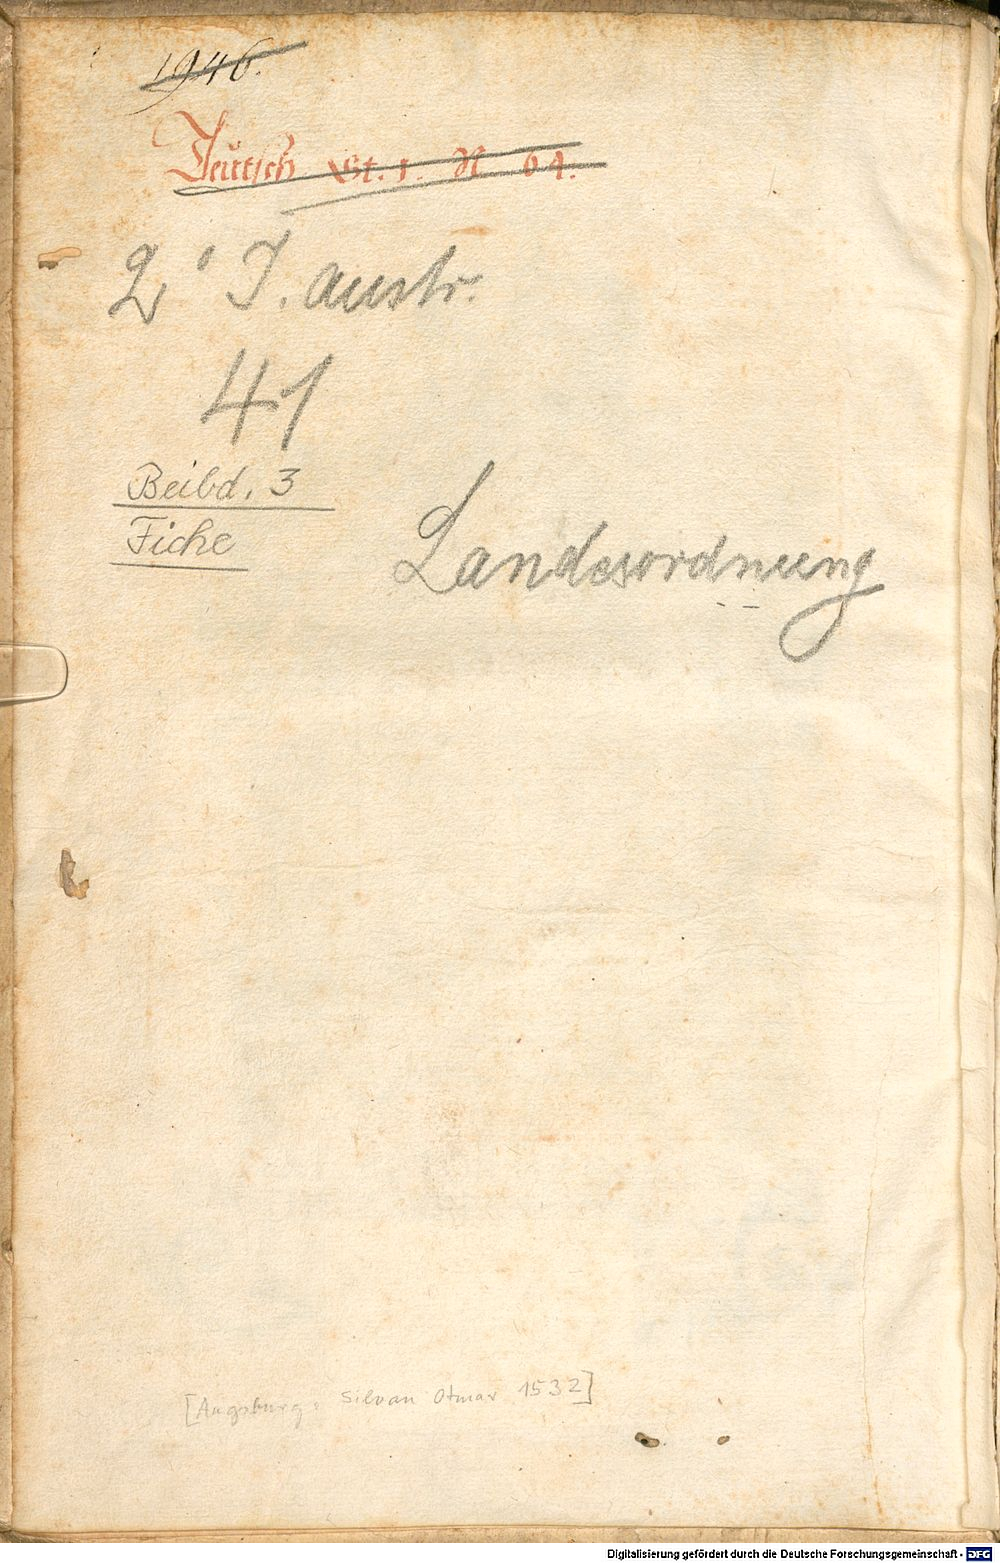 1946.
Teütsch St. 1. N. 64.
2° J. austr.
41
Beibd. 3
Fiche
Landesordnung
[Augsburg: Silvan Otmar 1532]
Digitalisierung gefördert durch die Deutsche Forschungsgemeinschaft - DFG